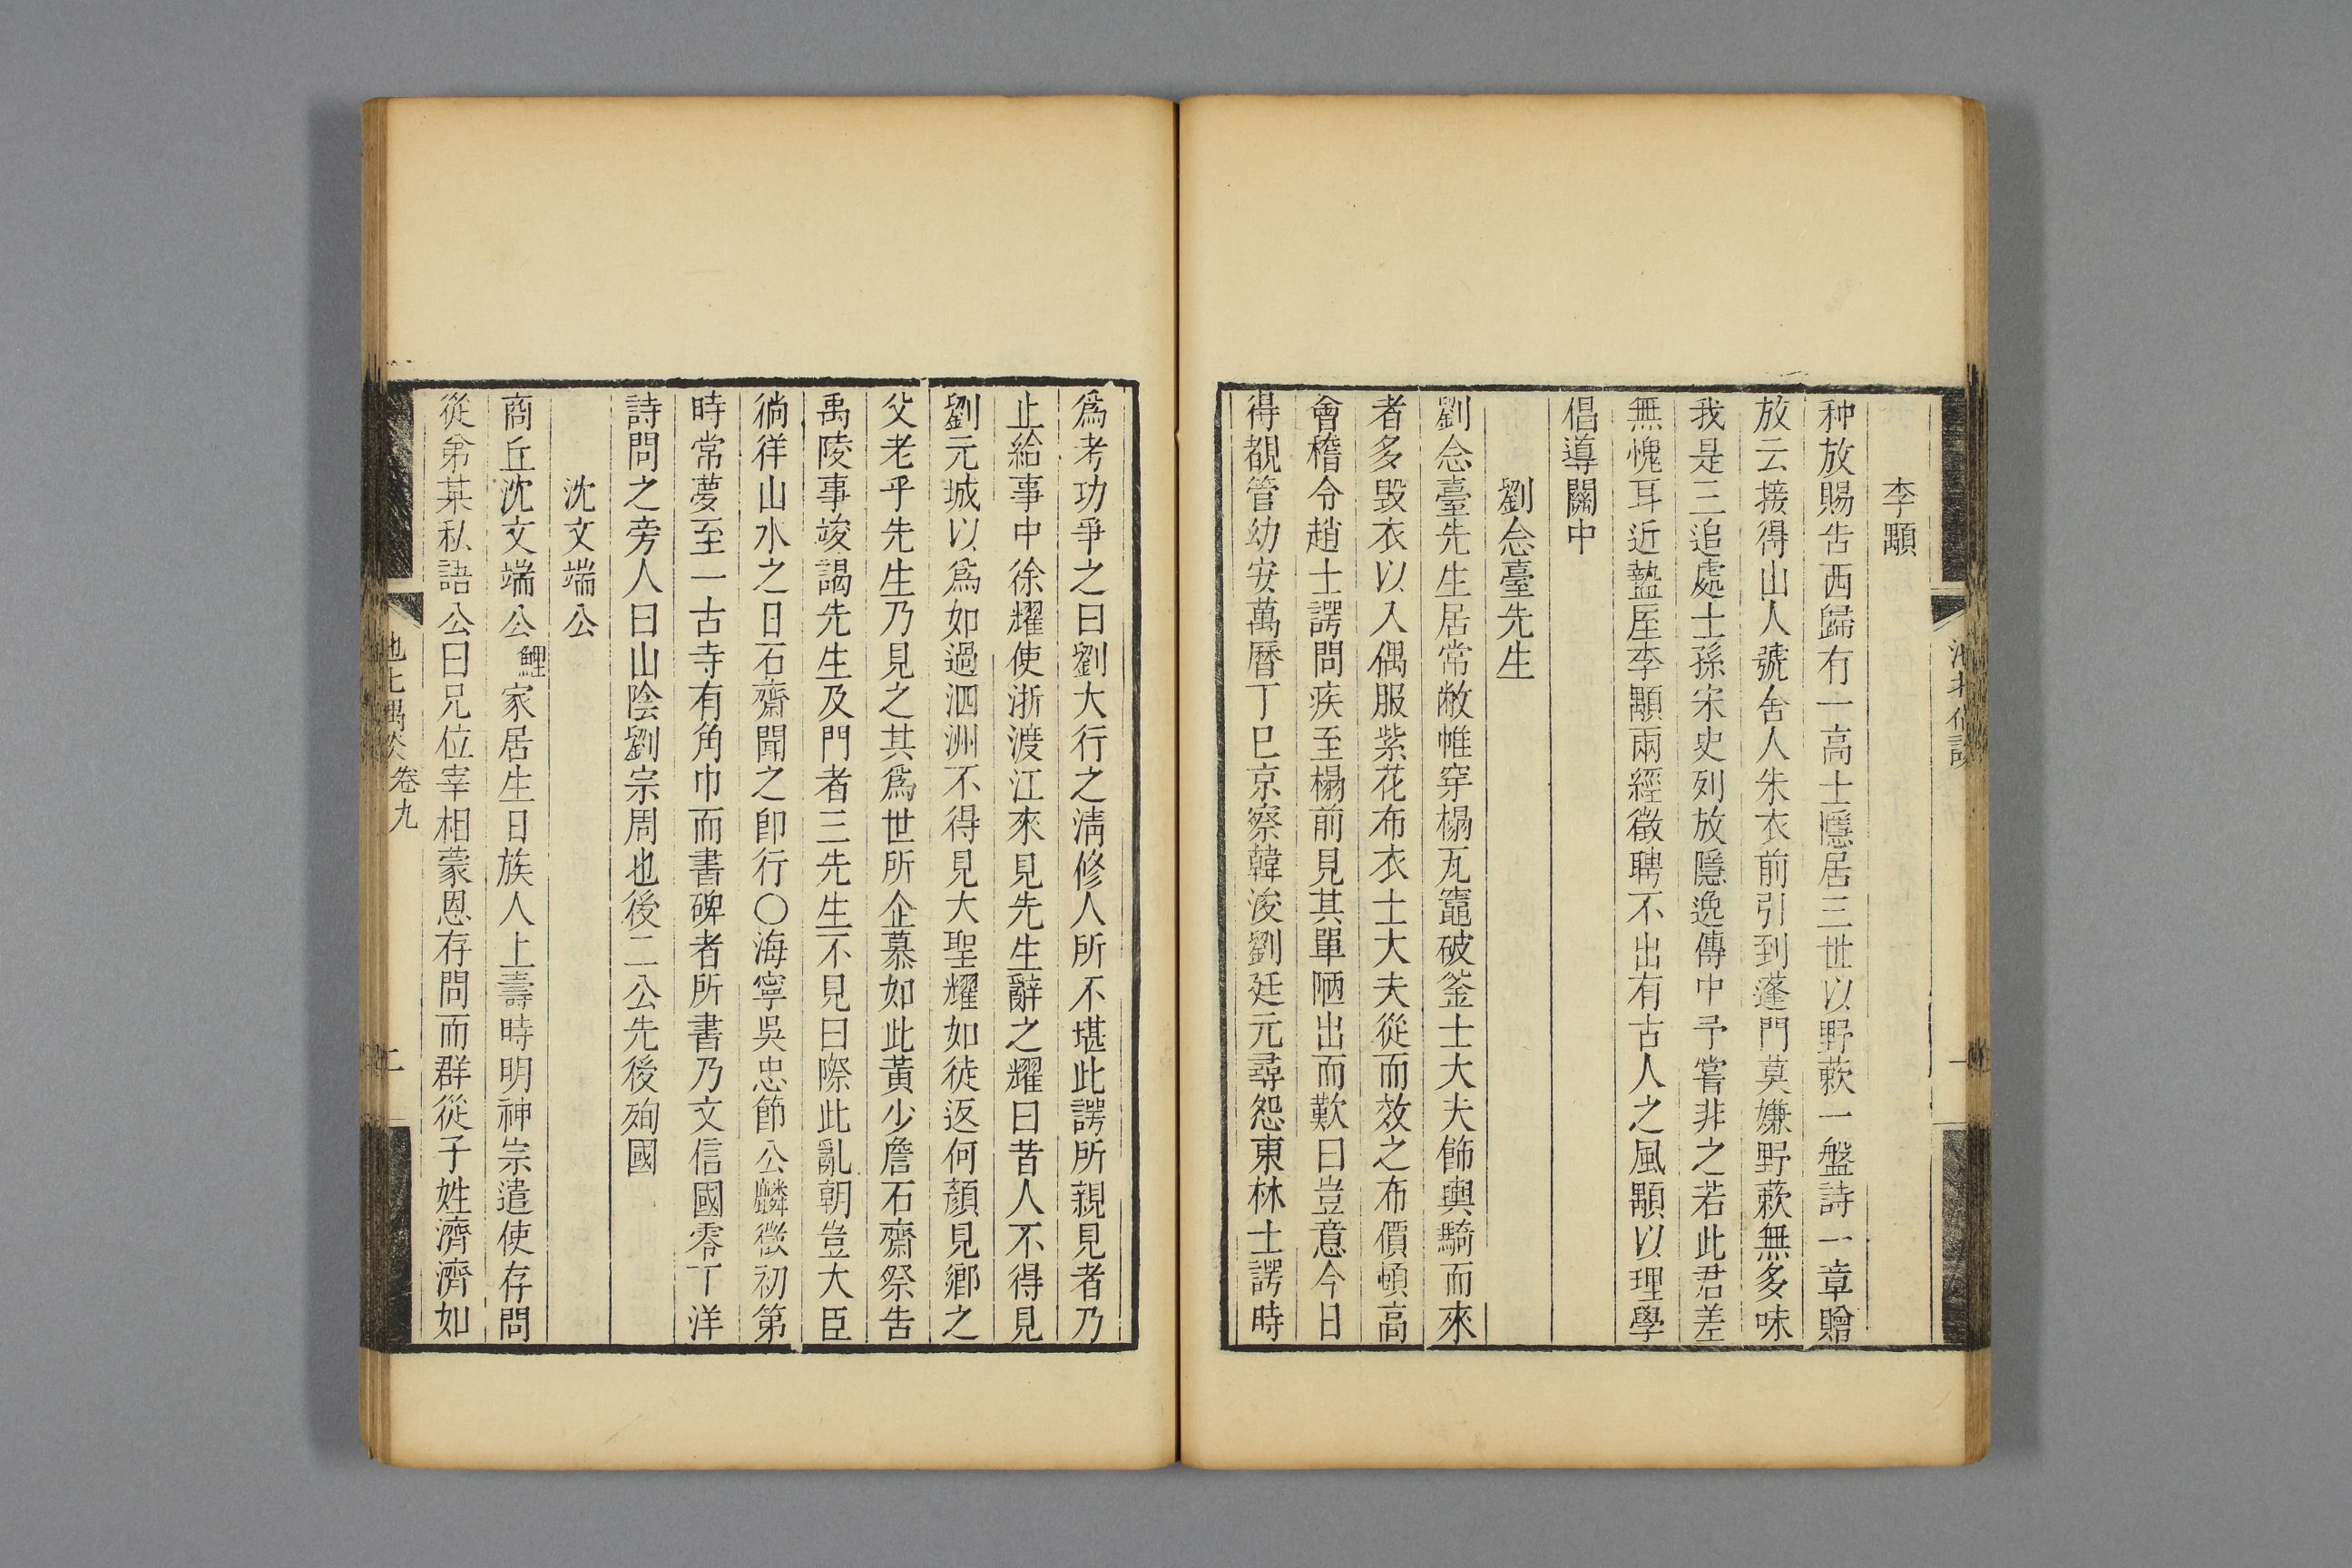 李顒
种放賜告西歸有一高士隱居三世以野蔌一盤詩一章贈
放云接得山人號舍人朱衣前引到蓬門莫嫌野蔌無多味
我是三追處士孫宋史列放隱逸傳中予嘗非之若此君差
無愧耳近盩厔李顒兩經徵聘不出有古人之風顒以理學
倡導關中
劉念臺先生
劉念臺先生居常敝帷穿榻瓦竈破釜士大夫飾輿騎而來
者多毀衣以入偶服紫花布衣士大夫從而效之布價頓高
會稽令趙士諤問疾至榻前見其單陋出而歎曰豈意今日
得覩管幼安萬曆丁巳京察韓浚劉廷元尋怨東林士諤時
爲考功爭之曰劉大行之淸修人所不堪此諤所親見者乃
止給事中徐耀使浙渡江來見先生辭之耀曰昔人不得見
劉元城以爲如過泗洲不得見大聖耀如徒返何顏見鄉之
父老乎先生乃見之其爲世所企慕如此黃少詹石齋祭告
禹陵事竣謁先生及門者三先生不見曰際此亂朝豈大臣
徜徉山水之日石齋聞之卽行○海寧吳忠節公麟徵初第
時常夢至一古寺有角巾而書碑者所書乃文信國零丁洋
詩問之旁人曰山陰劉宗周也後二公先後殉國
沈文端公
商丘沈文端公鯉家居生日族人上壽時明神宗遣使存問
從弟某私語公曰兄位宰相蒙恩存問而群從子姓濟濟如
卷九
二